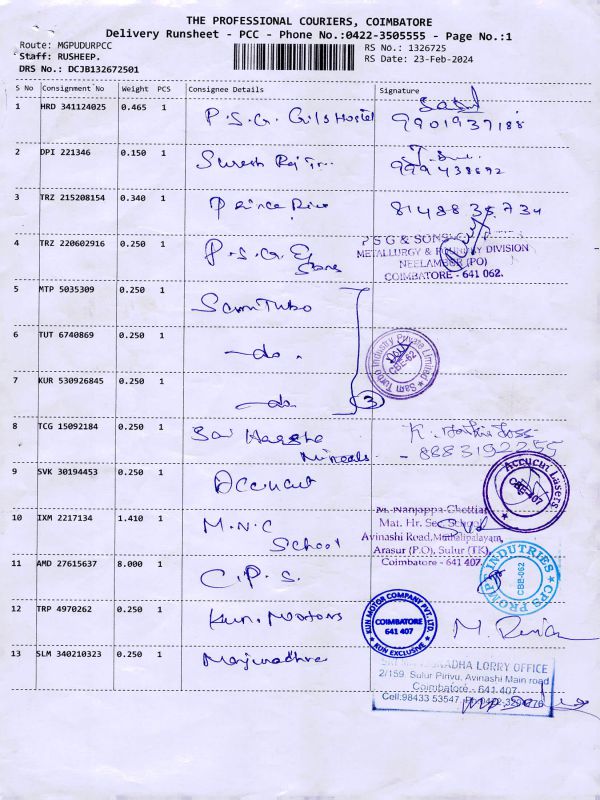 THE PROFESSIONAL COURIERS, COIMBATORE
Delivery Runsheet - PCC - Phone No.:0422-3505555 - Page No.:1
Route: MGPUDURPCC
RS No.: 1326725
Staff: RUSHEEP.
RS Date: 23-Feb-2024
DRS No.: DCJB132672501
S No Consignment No Weight PCS Consignee Details Signature
1 HRD 341124025 0.465 1 P.S.G. Girls Hostel
9901937188
2 DPI 221346 0.150 1 Suresh
3 TRZ 215208154 0.340 1 Prince
4 TRZ 220602916 0.250 1 P.S.G. &
Sons
P S G & SONS'
METALLURGY & FOUNDRY DIVISION
NEELAMBUR (PO)
COIMBATORE - 641 062.
5 MTP 5035309 0.250 1 Sam Turbo
6 TUT 6740869 0.250 1 -do.
Sam Turbo Industry Private Limited
CBE-62
7 KUR 530926845 0.250 1 -do. 3
8 TCG 15092184 0.250 1 Sai
Minerals - 8883192255
9 SVK 30194453 0.250 1 Accucut
Accucut Lasers
CBE-407
10 IXM 2217134 1.410 1 M.N.C
School
M. Nanjappa Chettiar
Mat. Hr. Sec School
Avinashi Road, Muthalipalayam,
Arasur (P.O), Sulur (TK),
Coimbatore - 641 407.
11 AMD 27615637 8.000 1 C.P.S.
CPS PROMPT INDUTRIES
CBE-062
12 TRP 4970262 0.250 1 Kun. Motors
KUN MOTOR COMPANY PVT. LTD.
COIMBATORE
641 407
KUN EXCLUSIVE
13 SLM 340210323 0.250 1 Manjunadhra
LORRY OFFICE
2/159, Sulur Pirivu, Avinashi Main road
Coimbatore - 641 407
Cell:98433 53547,